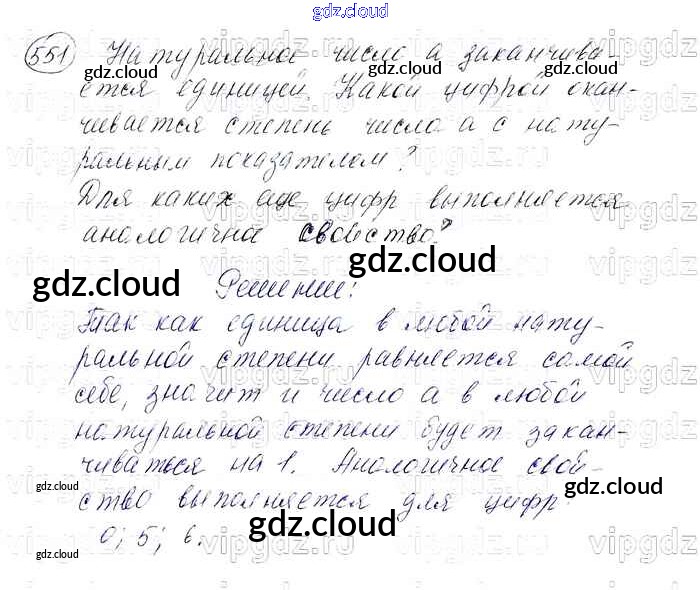 gdz.cloud
551 Натуральное число а заканчива
ется единицей. Какой цифрой окан-
чивается степень числа а с нату-
ральным показателем?
Для каких еще цифр выполняется
анологичное свойство?
gdz.cloud Решение: gdz.cloud
Так как единица в любой нату-
ральной степени равняется самой
себе, значит и число а в любой
натуральной степени будет закан-
чиваться на 1. Анологичное свой-
ство выполняется для цифр
0; 5; 6.
gdz.cloud